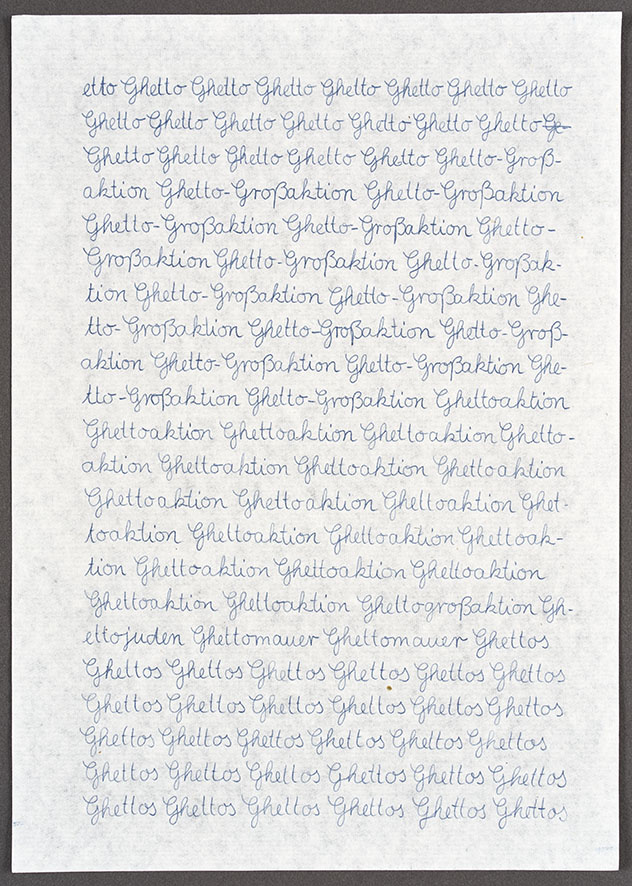 etto Ghetto Ghetto Ghetto Ghetto Ghetto Ghetto Ghetto
Ghetto Ghetto Ghetto Ghetto Ghetto Ghetto Ghetto Ge-
Ghetto Ghetto Ghetto Ghetto Ghetto Ghetto-Groß-
aktion Ghetto-Großaktion Ghetto-Großaktion
Ghetto-Großaktion Ghetto-Großaktion Ghetto-
Großaktion Ghetto-Großaktion Ghetto-Großak-
tion Ghetto-Großaktion Ghetto-Großaktion Ghe-
tto-Großaktion Ghetto-Großaktion Ghetto-Groß-
aktion Ghetto-Großaktion Ghetto-Großaktion Ghe-
tto-Großaktion Ghetto-Großaktion Ghettoaktion
Ghettoaktion Ghettoaktion Ghettoaktion Ghetto-
aktion Ghettoaktion Ghettoaktion Ghettoaktion
Ghettoaktion Ghettoaktion Ghettoaktion Ghet-
toaktion Ghettoaktion Ghettoaktion Ghettoak-
tion Ghettoaktion Ghettoaktion Ghettoaktion
Ghettoaktion Ghettoaktion Ghettogroßaktion Gh-
ettojuden Ghettomauer Ghettomauer Ghettos
Ghettos Ghettos Ghettos Ghettos Ghettos Ghettos
Ghettos Ghettos Ghettos Ghettos Ghettos Ghettos
Ghettos Ghettos Ghettos Ghettos Ghettos Ghettos
Ghettos Ghettos Ghettos Ghettos Ghettos Ghettos
Ghettos Ghettos Ghettos Ghettos Ghettos Ghettos